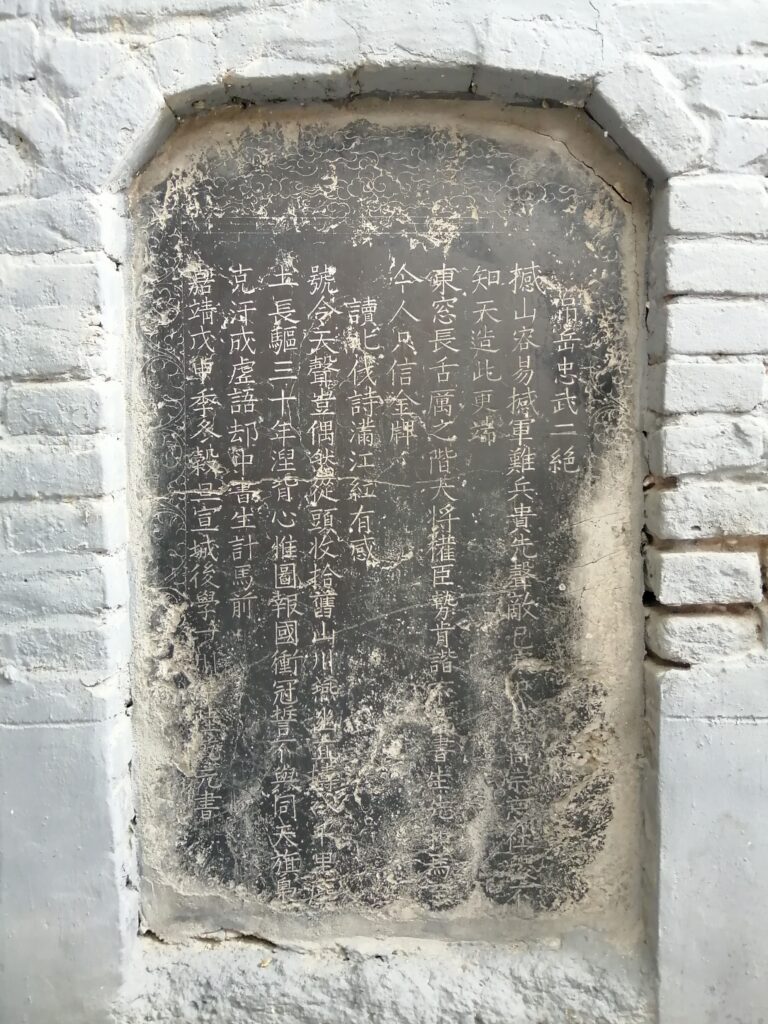 吊岳忠武二絕
撼山容易撼軍難兵貴先聲敵已高宗意
知天造此更端
東窓長舌厲之階大將權臣勢肯諧書生志馬
今人只信金牌
讀北伐詩滿江紅有感
號令天聲豈偶然從頭收拾舊山川燕幽直千里
士長驅三十年涅背心惟圖報國衝冠誓不與同天旗梟
克汴成虛語却中書生計馬前
嘉靖戊申季冬穀旦宣城後學書